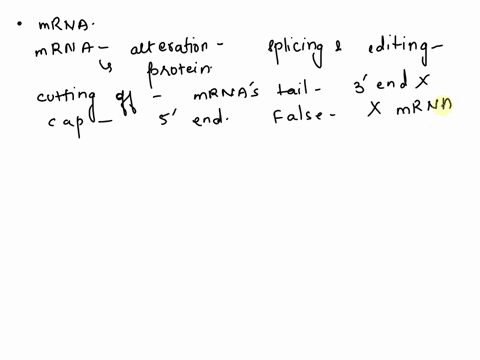 • mRNA.
mRNA - alteration - splicing & editing -
↳ protein
cutting off - mRNA's tail - 3' end X
cap - 5' end. False - X mRNA